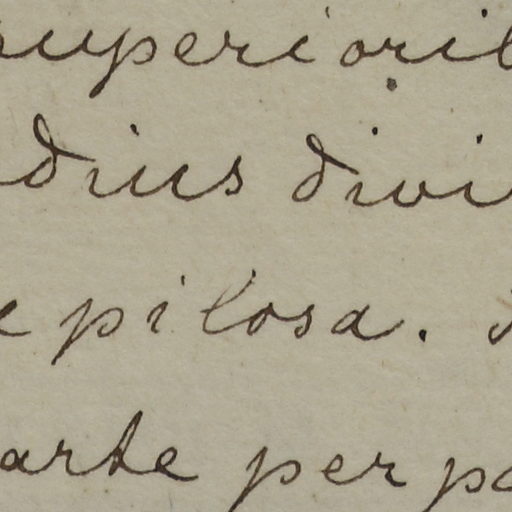 superiorib
dius divi
e pilosa.
arte per pa